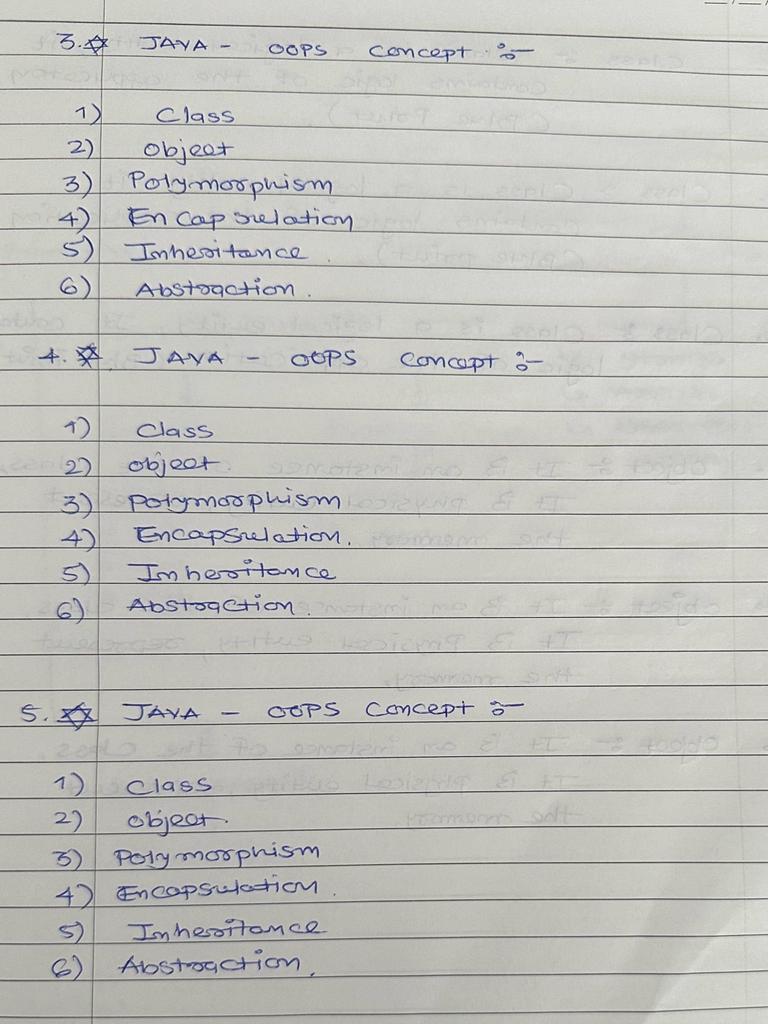 3. ✡ JAVA - OOPS Concept :-
1) Class
2) Object
3) Polymorphism
4) Encapsulation
5) Inheritance
6) Abstraction.
4. ✡ JAVA - OOPS Concept :-
1) Class
2) object
3) Polymorphism
4) Encapsulation.
5) Inheritance
6) Abstraction.
5. ✡ JAVA - OOPS Concept :-
1) Class
2) object.
3) Polymorphism
4) Encapsulation.
5) Inheritance
6) Abstraction.